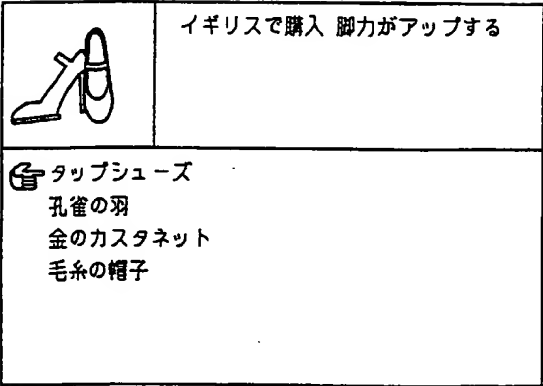 イギリスで購入 脚力がアップする
タップシューズ
孔雀の羽
金のカスタネット
毛糸の帽子